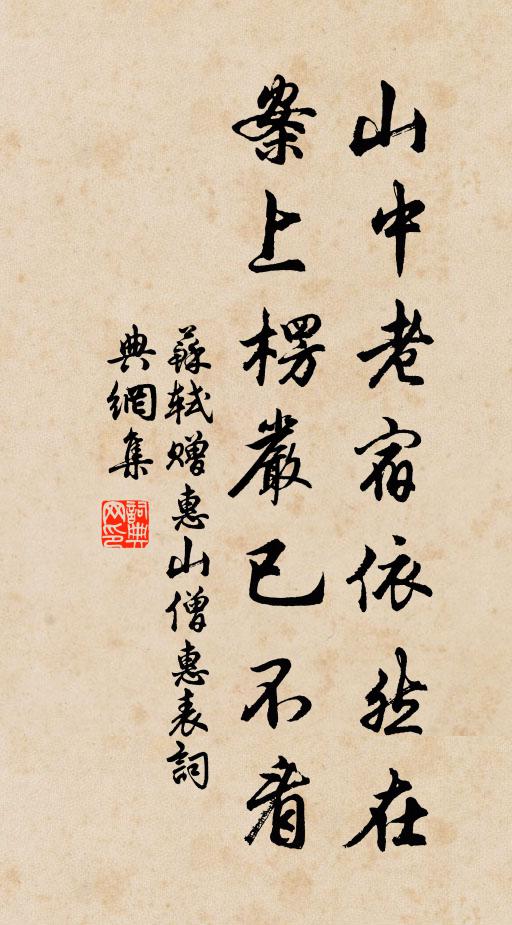 山中老宿依然在
案上楞嚴已不看
蘇軾贈惠山僧惠表詞
典網集
詞典
网印